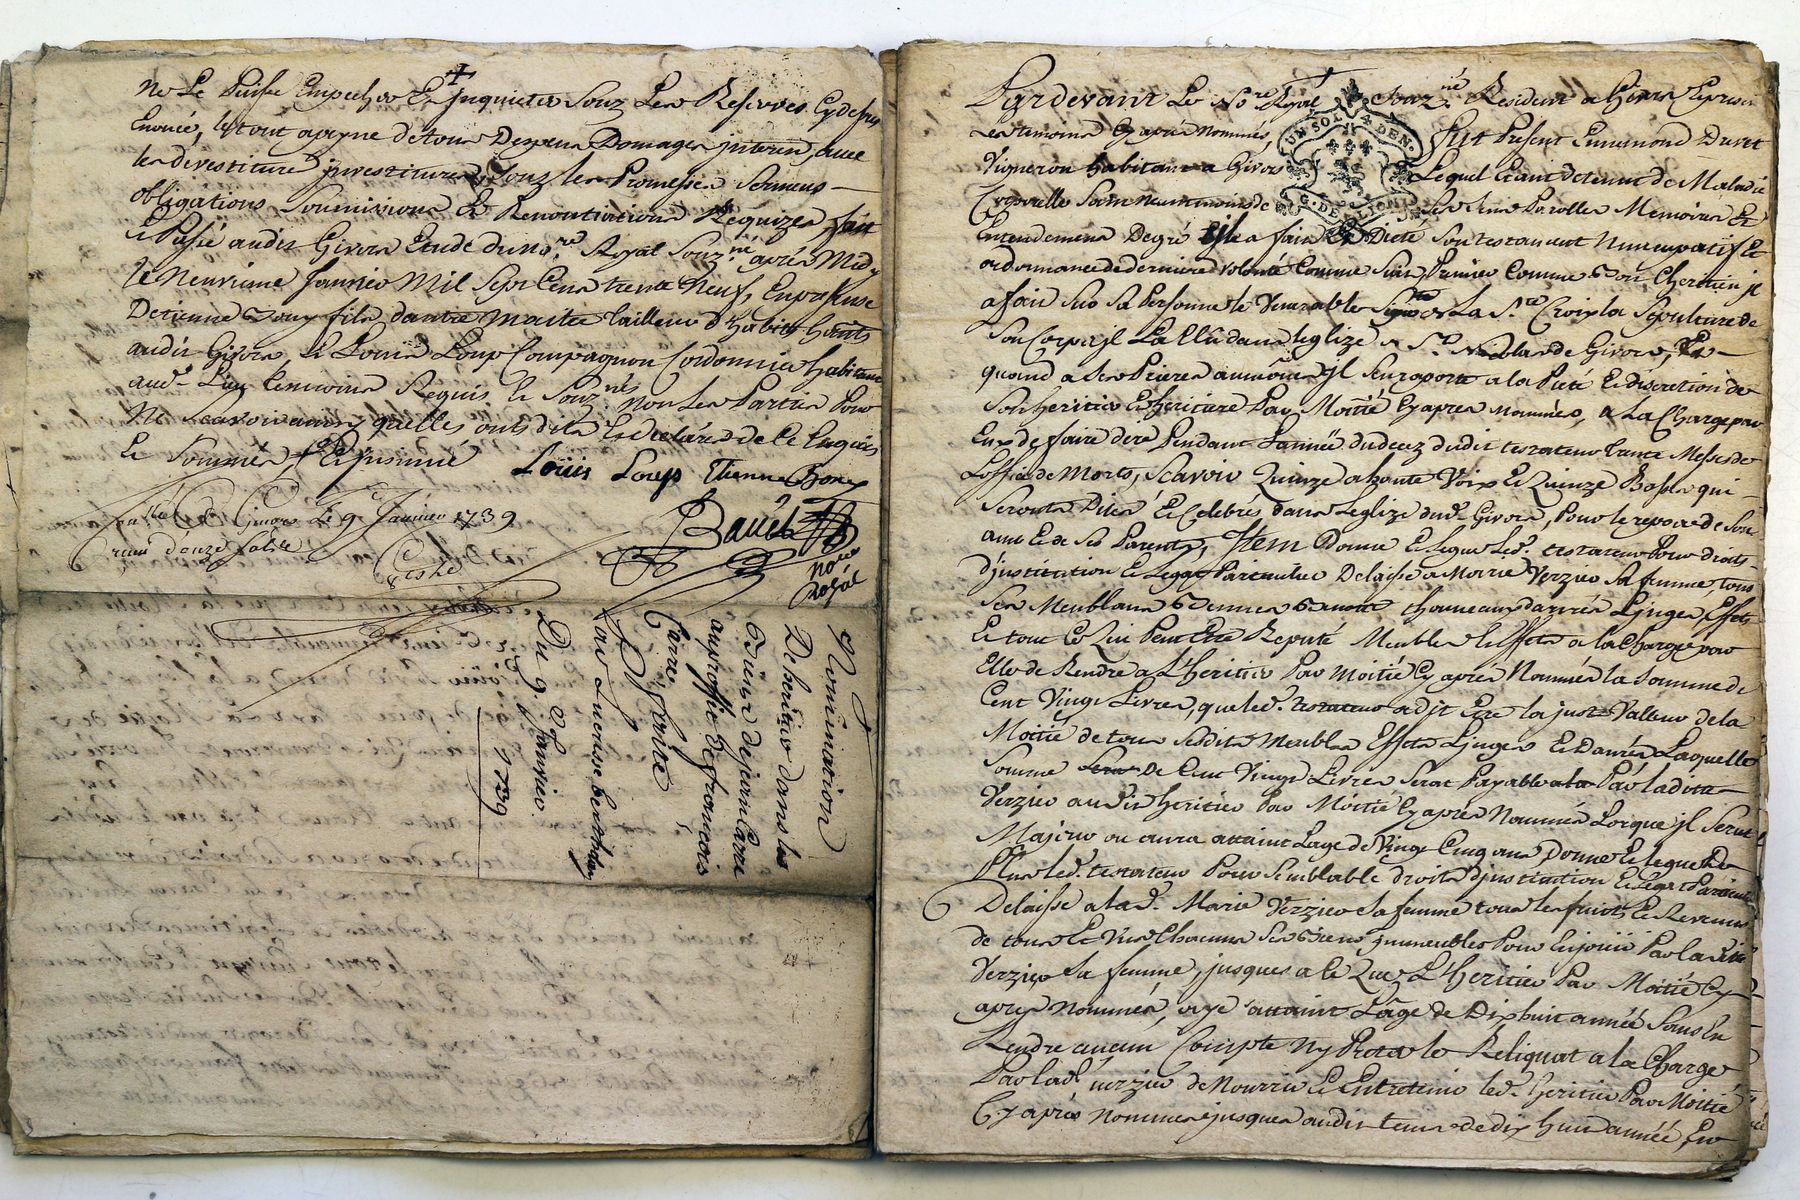 ne Le Puisse Empecher Et Inquieter Souz Les Reserves Cydessus
Enoncé, le tout apeyne de tous Depens Domages interets, avec
les devestiture investitures, Souz les Promesses Sermens
obligations Soumissions Et Renontiations Requizes, fait
Et Passé audit Givors Etude du no.re Royal Souz.né après Midy
le Neuvieme Janvier Mil Sept Cens trente Neuf, En presense
D'etienne Bony fils d'autre maitre tailleur d'habits habitt
audit Givors, Et Louis Loup Compagnon Cordonnier habitant
aud.t Lieu temoins Requis Et Souz.nés non les Parties Pour
ne Scavoir ainsy quelles onts dit Et declaré de ce Enquis
Et Sommés,
Louis Loup Etienne Bony
Conllé A Givors Le 9e Janvier 1739
receu douze sols
Bauet
no.re
Royal
Nomination
De heritier dans les
Biens de jean Carre
au proffit de françois
Carre
Par Lucresse berthelay
Du 9. Janvier
1739
Pardevant Le No.re Royal Souz.né Resident a Givors Et presens
Les temoins Cy après nommés
UN SOL 4 DEN.
G. DE LYON
fut Présent Ennemond Duret
Vigneron habitant a Givors
Lequel Etant detenu de Maladie
Corporelle Sain neanmoins de
Ses Sens Parolles Memoires Et
Entendement De gré il a fait Et Dicté Son testament Nuncupatif Et
ordonnance de derniere volonté Comme Suit, Premier Comme Bon Chretien il
a fait Sur Sa Personne le Venerable Signe de La S.te Croix la Sepulture de
Son Corps il La Elu dans leglize de S.t Nicolas de Givors,
quand a Ses Prieres aumônes il Sen raporte a la Pieté Et discretion de
Son heritier Et heritiere Par Moitié Cy apres nommés, a La Charge par
Eux de faire dire Pendant l'année du decez dudit testateur trente Messes de
Loffice de Morts, Scavoir Quinze a haute Voix Et Quinze Basses qui
Seronts Dites Et Celebrés dans leglize dud.t Givors, Pour le repos de Son
ame Et de Ses Parents, Item Donne Et legue Led.t testateur Pour droits
d'institution Et Legat Particulier Delaissé a Marie Verzier Sa femme, tous
Ses Meublans Denrées Linges Effets
Et tout Ce Qui Peut Etre Reputé Meubles Et Effets a la Charge par
Elle de Rendre a L'heritier Par Moitié Cy après Nommés la Somme de
Cent Vingt Livres, que led.t testateur a dit Etre la juste Valleur de la
Moitié de tous Sesdits Meubles Effets Linges Et Danrés, Laquelle
Somme de Cent Vingt Livres Serat Payable Par ladite
Verzier audit heritier Par Moitié Cy après Nommés Lorque il Serat
Majeur ou aura attaint Lage de Vingt Cinq ans Donne Et legue De
Plus led.t testateur Pour Semblable droits d'institution Et Legat Particulier
Delaissé a lad.te Marie Verzier Sa femme tous les fruits Et Revenus
de tous Et Uns Chacuns Ses Biens immeubles Pour En jouir Par ladite
Verzier Sa femme, jusques a Ce Que L'heritier Par Moitié Cy
apres nommé, aye attaint Lâge de Dix huit année Sans En
Rendre aucun Compte Ny Prêter le Reliquat a la Charge
Par lad.te verzier de Nourrir Et Entretenir led.t heritier Par Moitié
Cy après Nommer jusques audit tems de dix huit année, Et